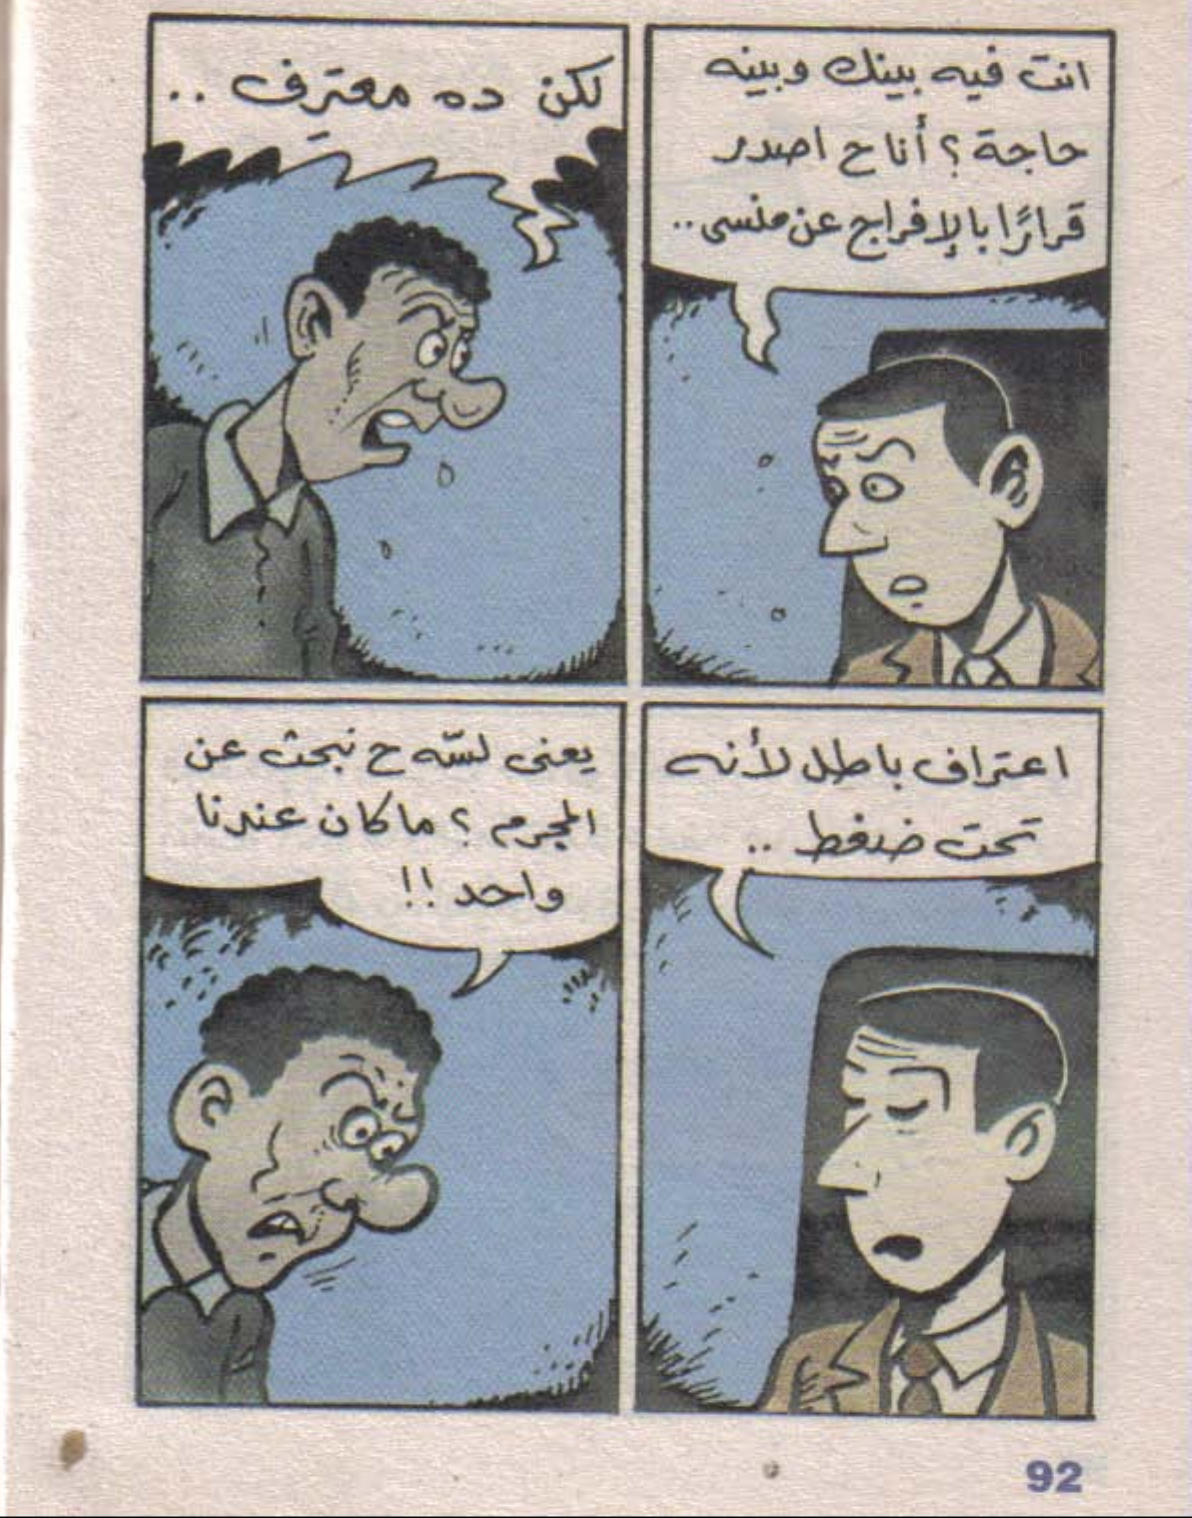 انت فيه بينك وبينه
حاجة ؟ أنا ح اصدر
قرارًا بالإفراج عن منسى ..
لكن ده معترِف ..
اعتراف باطل لأنه
تحت ضغط ..
يعنى لسّه ح نبحث عن
المجرم ؟ ما كان عندنا
واحد !!
92